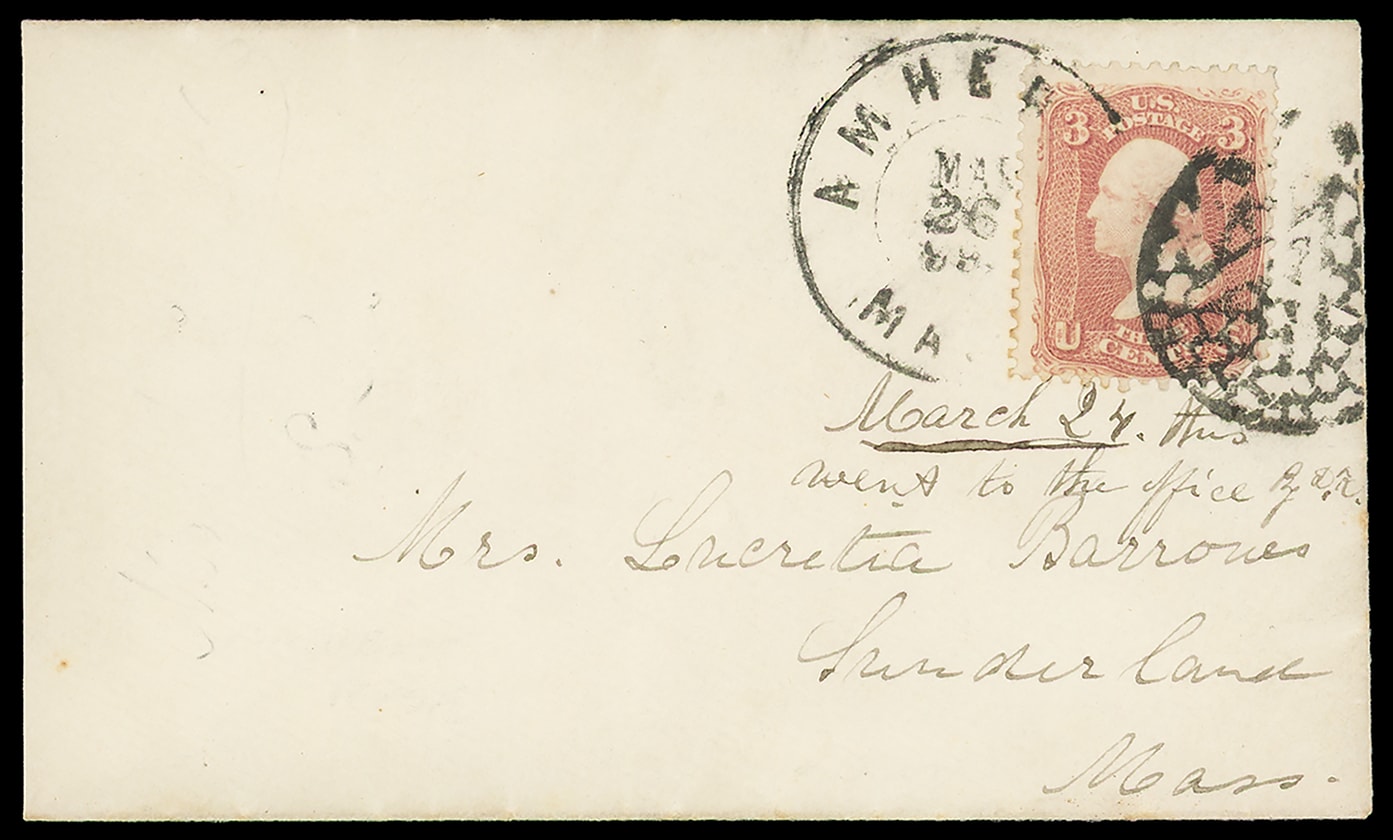 AMHER
MAR
26
MA
U.S.
POSTAGE
3 3
U
THREE
CENTS
March 24. this
went to the office
Mrs. Lucretia Barrows
Sunderland
Mass.